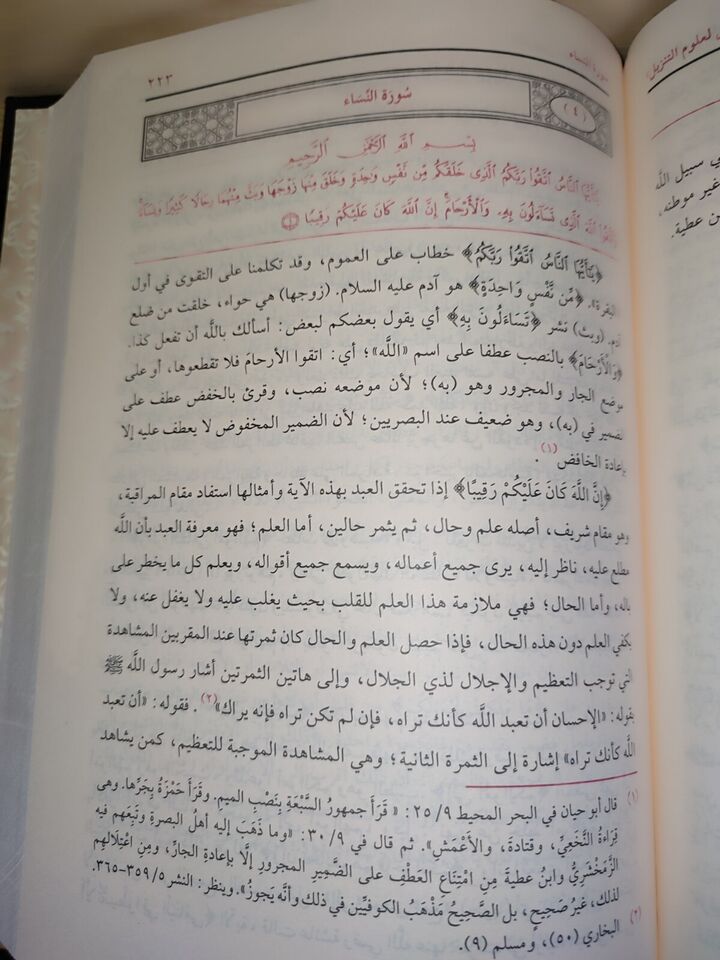 سورة النساء
٢٢٣
(٤)
سُورَة النِّسَاء
بِسْمِ اللَّهِ الرَّحْمَٰنِ الرَّحِيمِ
يَٰٓأَيُّهَا ٱلنَّاسُ ٱتَّقُواْ رَبَّكُمُ ٱلَّذِى خَلَقَكُم مِّن نَّفْسٍ وَٰحِدَةٍ وَخَلَقَ مِنْهَا زَوْجَهَا وَبَثَّ مِنْهُمَا رِجَالًا كَثِيرًا وَنِسَآءً
وَٱتَّقُواْ ٱللَّهَ ٱلَّذِى تَسَآءَلُونَ بِهِۦ وَٱلْأَرْحَامَ إِنَّ ٱللَّهَ كَانَ عَلَيْكُمْ رَقِيبًا ١
﴿يَٰٓأَيُّهَا ٱلنَّاسُ ٱتَّقُواْ رَبَّكُمُ﴾ خطاب على العموم، وقد تكلمنا على التقوى في أول
البقرة». ﴿مِّن نَّفْسٍ وَاحِدَةٍ﴾ هو آدم عليه السلام. (زوجها) هي حواء، خلقت من ضلع
آدم. (وبث) نشر ﴿تَسَاءَلُونَ بِهِ﴾ أي يقول بعضكم لبعض: أسألك باللَّه أن تفعل كذا.
﴿وَالْأَرْحَامَ﴾ بالنصب عطفا على اسم «اللَّه»؛ أي: اتقوا الأرحامَ فلا تقطعوها، أو على
موضع الجار والمجرور وهو (به)؛ لأن موضعه نصب، وقرئ بالخفض عطف على
الضمير في (به)، وهو ضعيف عند البصريين؛ لأن الضمير المخفوض لا يعطف عليه إلا
بإعادة الخافض (١).
﴿إِنَّ اللَّهَ كَانَ عَلَيْكُمْ رَقِيبًا﴾ إذا تحقق العبد بهذه الآية وأمثالها استفاد مقام المراقبة،
وهو مقام شريف، أصله علم وحال، ثم يثمر حالين، أما العلم؛ فهو معرفة العبد بأن اللَّه
مطلع عليه، ناظر إليه، يرى جميع أعماله، ويسمع جميع أقواله، ويعلم كل ما يخطر على
باله، وأما الحال؛ فهي ملازمة هذا العلم للقلب بحيث يغلب عليه ولا يغفل عنه، ولا
يكفي العلم دون هذه الحال، فإذا حصل العلم والحال كان ثمرتها عند المقربين المشاهدة
التي توجب التعظيم والإجلال لذي الجلال، وإلى هاتين الثمرتين أشار رسول اللَّه ﷺ
بقوله: «الإحسان أن تعبد اللَّه كأنك تراه، فإن لم تكن تراه فإنه يراك»(٢). فقوله: «أن تعبد
اللَّه كأنك تراه» إشارة إلى الثمرة الثانية؛ وهي المشاهدة الموجبة للتعظيم، كمن يشاهد
(١) قال أبو حيان في البحر المحيط ٩/ ٢٥: «قَرَأَ جمهورُ السَّبْعَةِ بِنَصْبِ الميمِ. وقَرَأَ حَمْزَةُ بِجَرِّها. وهي
قِرَاءَةُ النَّخَعِيِّ، وقتادةَ، والأَعْمَشِ». ثم قال في ٩/ ٣٠: «وما ذَهَبَ إليه أهلُ البصرةِ وتَبِعَهم فيه
الزَّمَخْشَرِيُّ وابنُ عطيةَ مِنِ امْتِنَاعِ العَطْفِ على الضَّمِيرِ المجرورِ إلَّا بإعادةِ الجارِّ، ومِنِ اعْتِلَالِهِم
لذلك، غيرُ صَحِيحٍ، بل الصَّحِيحُ مَذْهَبُ الكوفيِّين في ذلك وأنَّه يَجوزُ». وينظر: النشر ٥/ ٣٥٩-٣٦٥.
(٢) البخاري (٥٠)، ومسلم (٩).
لعلوم التنزيل
في سبيل اللَّه
غير موطنه،
بن عطية.